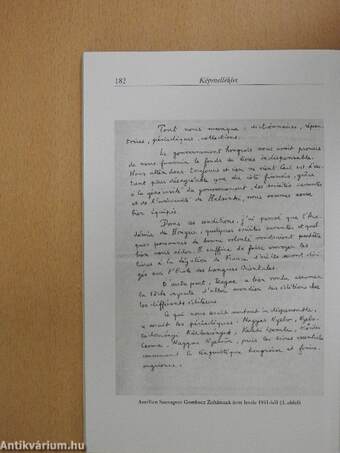 182
Képmelléklet
Tout nous manque : dictionnaires, réper-
toires, périodiques, collections.
Le gouvernement hongrois nous avait promis
de nous fournir le fonds de livres indispensable.
Nous attendons toujours et rien ne vient. Ceci est d'au-
tant plus désagréable que du côté finnois, grâce
à la générosité du gouvernement, des sociétés savantes
et de l'université de Helsinki, nous sommes assez
bien équipés.
Dans ces conditions, j'ai pensé que l'Aca-
démie de Hongrie, quelques sociétés savantes et quel-
ques personnes de bonne volonté voudraient peut-être
bien nous aider. Il suffira de faire envoyer les
livres à la légation de France d'où ils seront diri-
gés sur l'Ecole des Langues Orientales.
D'autre part, a bien voulu assumer
la tâche d'aller les éditions chez
les différents éditeurs.
Ce qui nous serait surtout indispensable,
c'est les périodiques: Magyar Nyelvőr, Nyelv-
tudományi Közlemények, Kőrösi
Csoma, Magyar Nyelv, puis les livres essentiels
concernant la linguistique hongroise et finno-
ougrienne.
Aurélien Sauvageot Gombocz Zoltánnak írott levele 1931-ből (2. oldal)
Antikvárium.hu